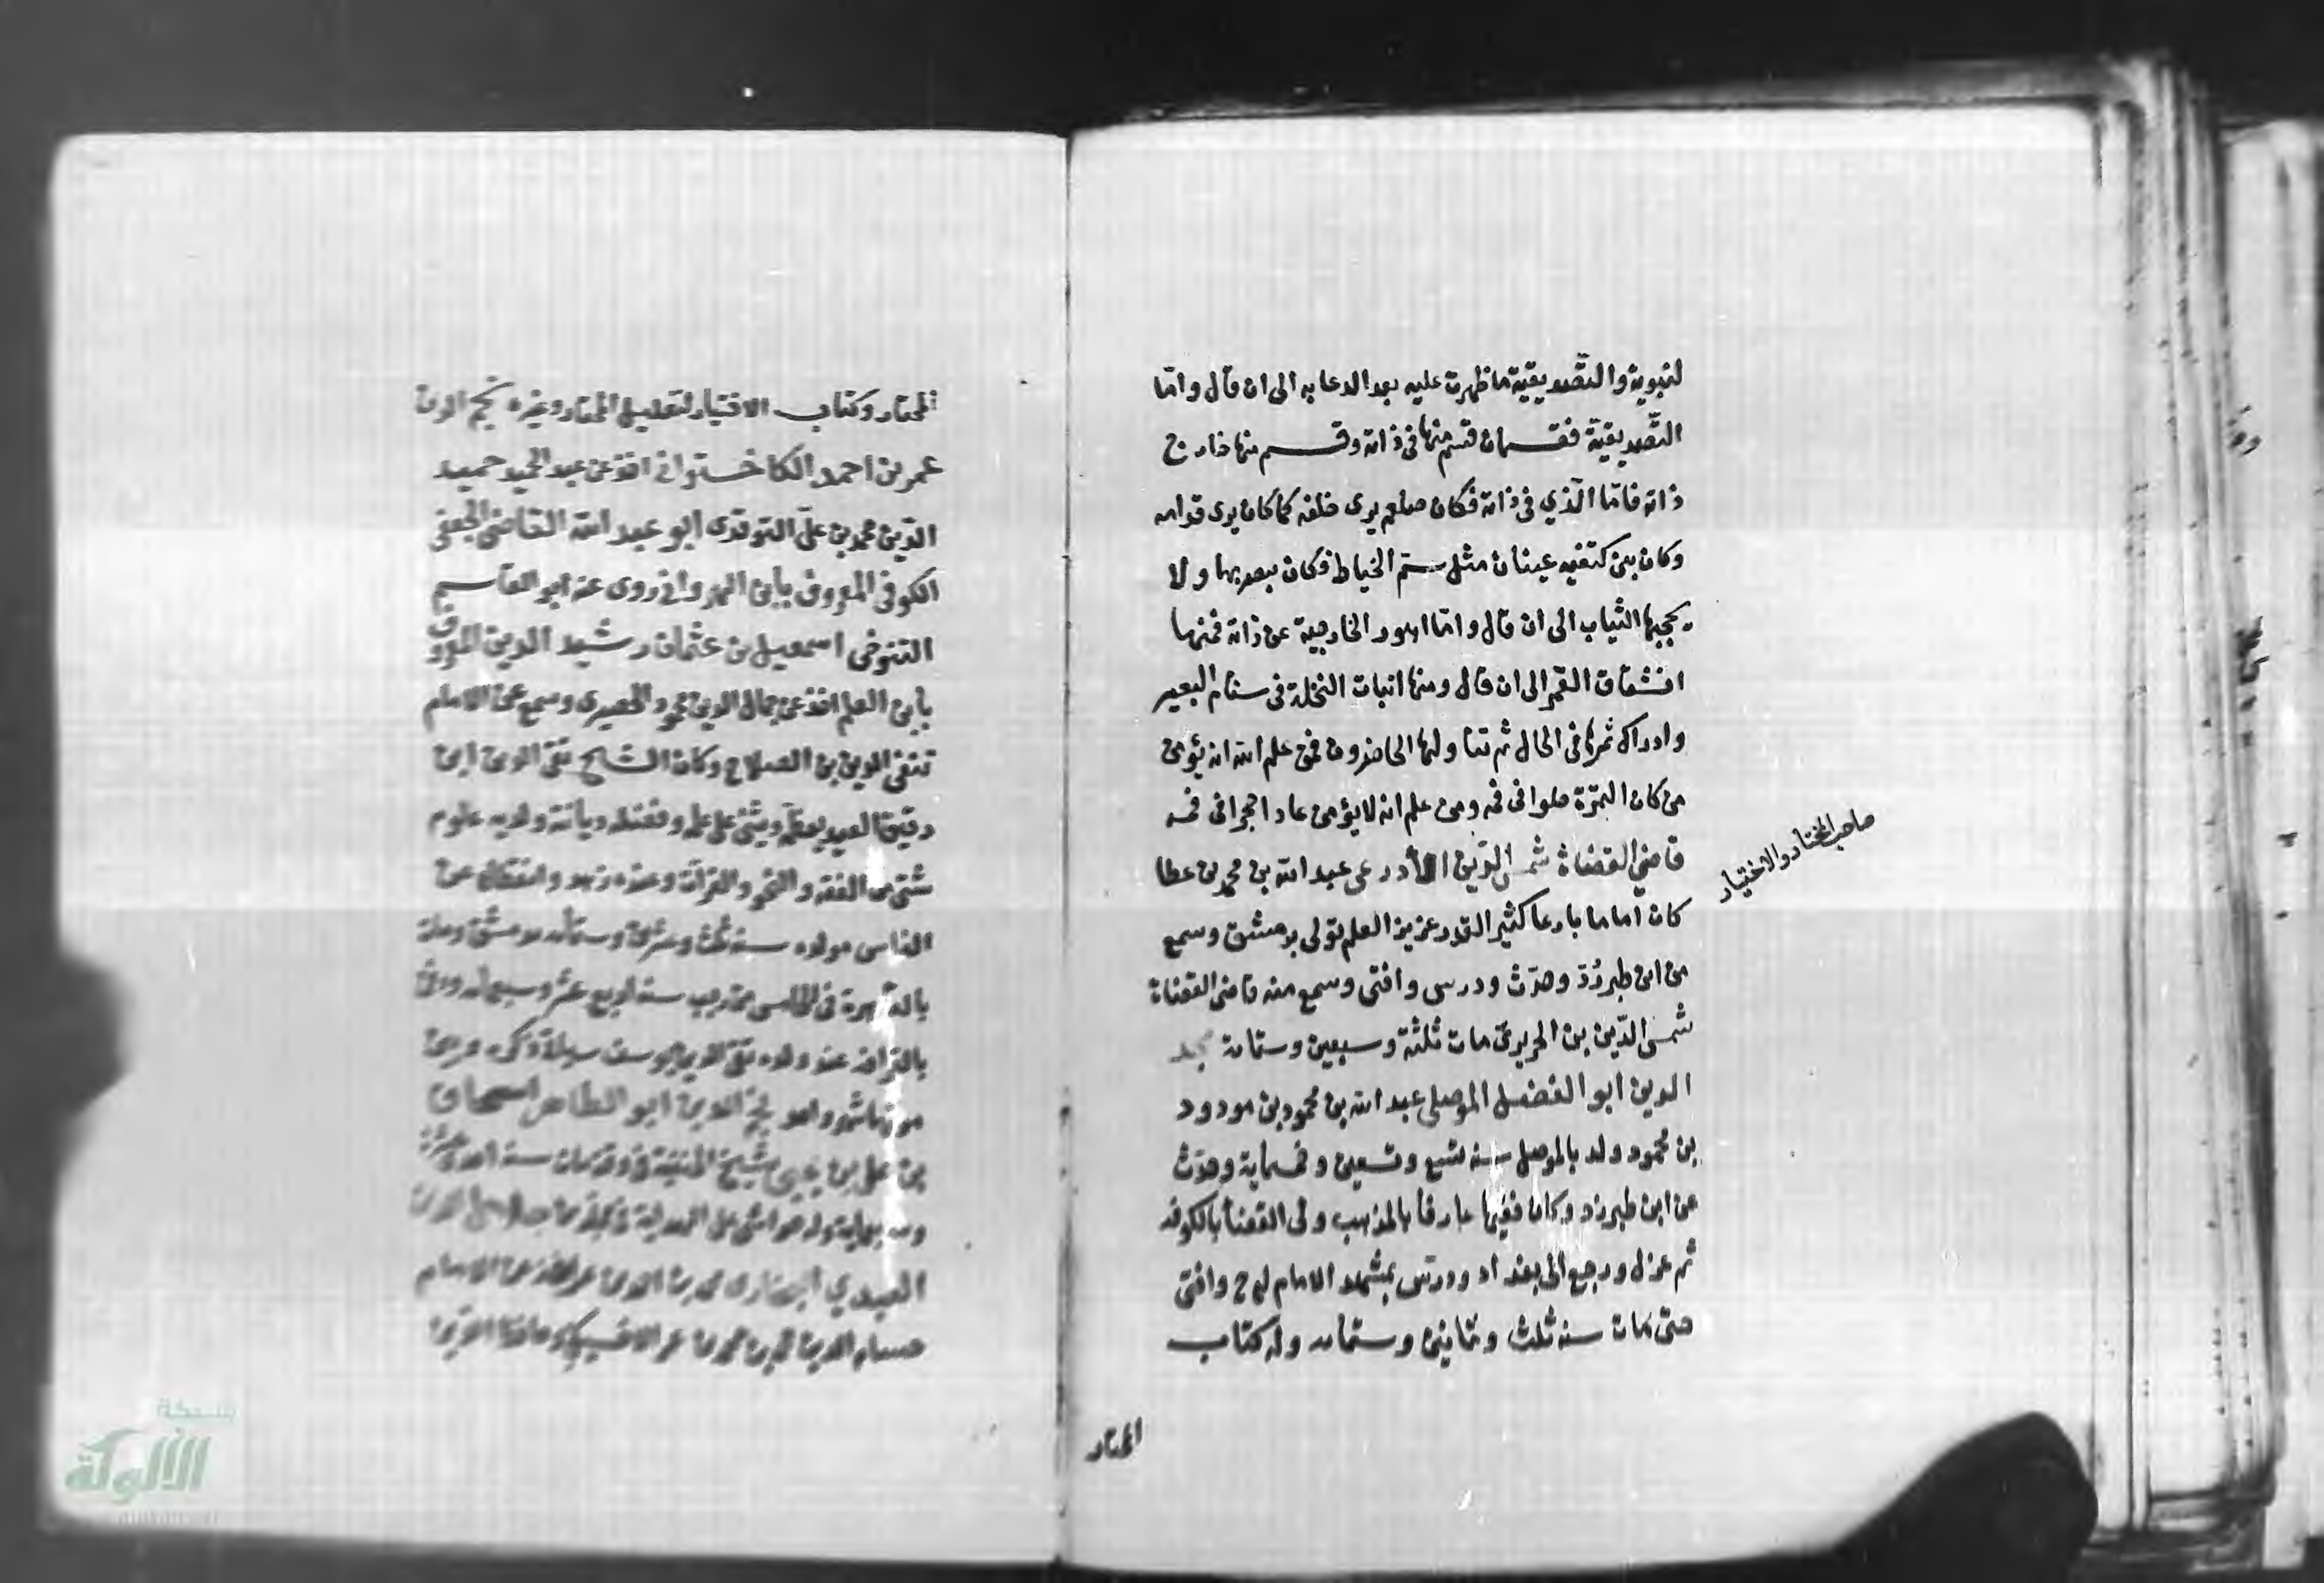 لنبوية والتصديقية ما ظهرت عليه بعد الدعا به الى ان قال واما
التصديقية فقسمان قسم منها في ذاته وقسم منها خارج
ذاته فاما الذي في ذاته فكان صلعم يرى خلفه كما كان يرى قدامه
وكان بين كتفيه عينان مثل ستم الخياط فكان يبصر بهما ولا
يحجبها الثياب الى ان قال واما الامور الخارجية عن ذاته فمنها
انشقاق القمر الى ان قال ومنها انبات النخلة في سنام البعير
وادراك ثمرها في الحال ثم تناولها الحاضرون فمن علم الله انه يؤمن
من كان التمرة حلوا في فمه ومن علم انه لا يؤمن عاد احجرا في فمه
قاضي القضاة شمس الدين الأدرعى عبد الله بن محمد بن عطا
كان اماما بارعا كثير القدر عزيز العلم تولى بدمشق وسمع
من ابن طبرزد وحدث ودرس وافتى وسمع منه قاضي القضاة
شمس الدين بن الحريري مات ثلثة وسبعين وستماىة مجد
الدين ابو الفضل الموصلي عبد الله بن محمود بن مودود
بن محمود ولد بالموصل سنه تسع وتسعين وخمساية وحدث
عن ابن طبرزد وكان فقيها عارفا بالمذهب ولى القضا بالكوفه
ثم عزل ورجع الى بغداد ودرس بمشهد الامام لى ح وافتى
حتى مات سنه ثلث وثمانين وستماىه وله كتاب
المختار
صاحب المختار والاختيار
المختار وكتاب الاختيار لتعليل المختار وغيره نجم الدين
عمر بن احمد الكاخستواني اخذ عن عبد الحميد حميد
الدين محمد بن علي التوقدى ابو عبد الله القاضى الجعفى
الكوفى المعروف بابن الهروانى روى عنه ابو القاسم
التنوخى اسمعيل بن عثمان رشيد الدين المعروف
بابن المعلم اخذ عن جمال الدين محمود الحصيرى وسمع عن الامام
تقى الدين بن الصلاح وكان الشيخ تقى الدين ابن
دقيق العيد يعظمه ويثنى على علمه وفضله وديانته ولديه علوم
شتى من الفقه والنحو والقراة وعنده زهد وانقطاع عن
الناس مولده سنه ثلث وعشرين وستمأىه بدمشق ومات
بالقاهرة فى الخامس من رجب سنه اربع عشر وسبعمائه ودفن
بالقرافه عند ولده تقى الدين يوسف
ابو الطاهر اسحاق
بن على بن يحيى شيخ الحنفية فى وقته مات سنة احدى عشرة
وسبعماية وله حواشى على الهداية